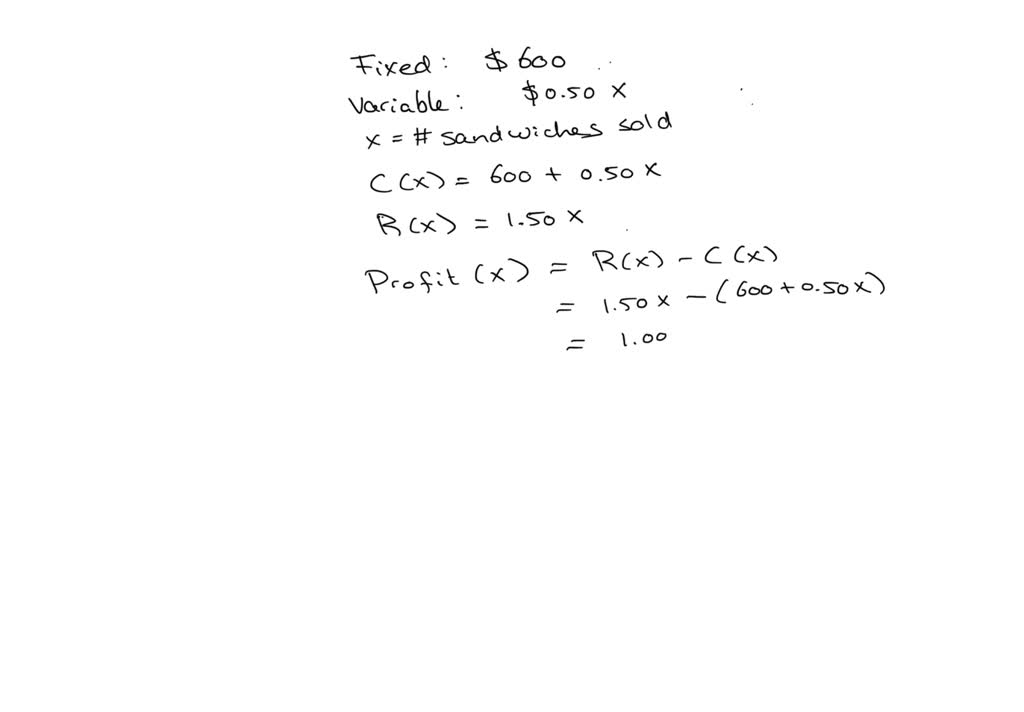 Fixed: $600
Variable: $0.50 x
x = # sandwiches sold
C(x) = 600 + 0.50 x
R(x) = 1.50 x
Profit (x) = R(x) - C(x)
= 1.50 x - (600 + 0.50 x)
= 1.00